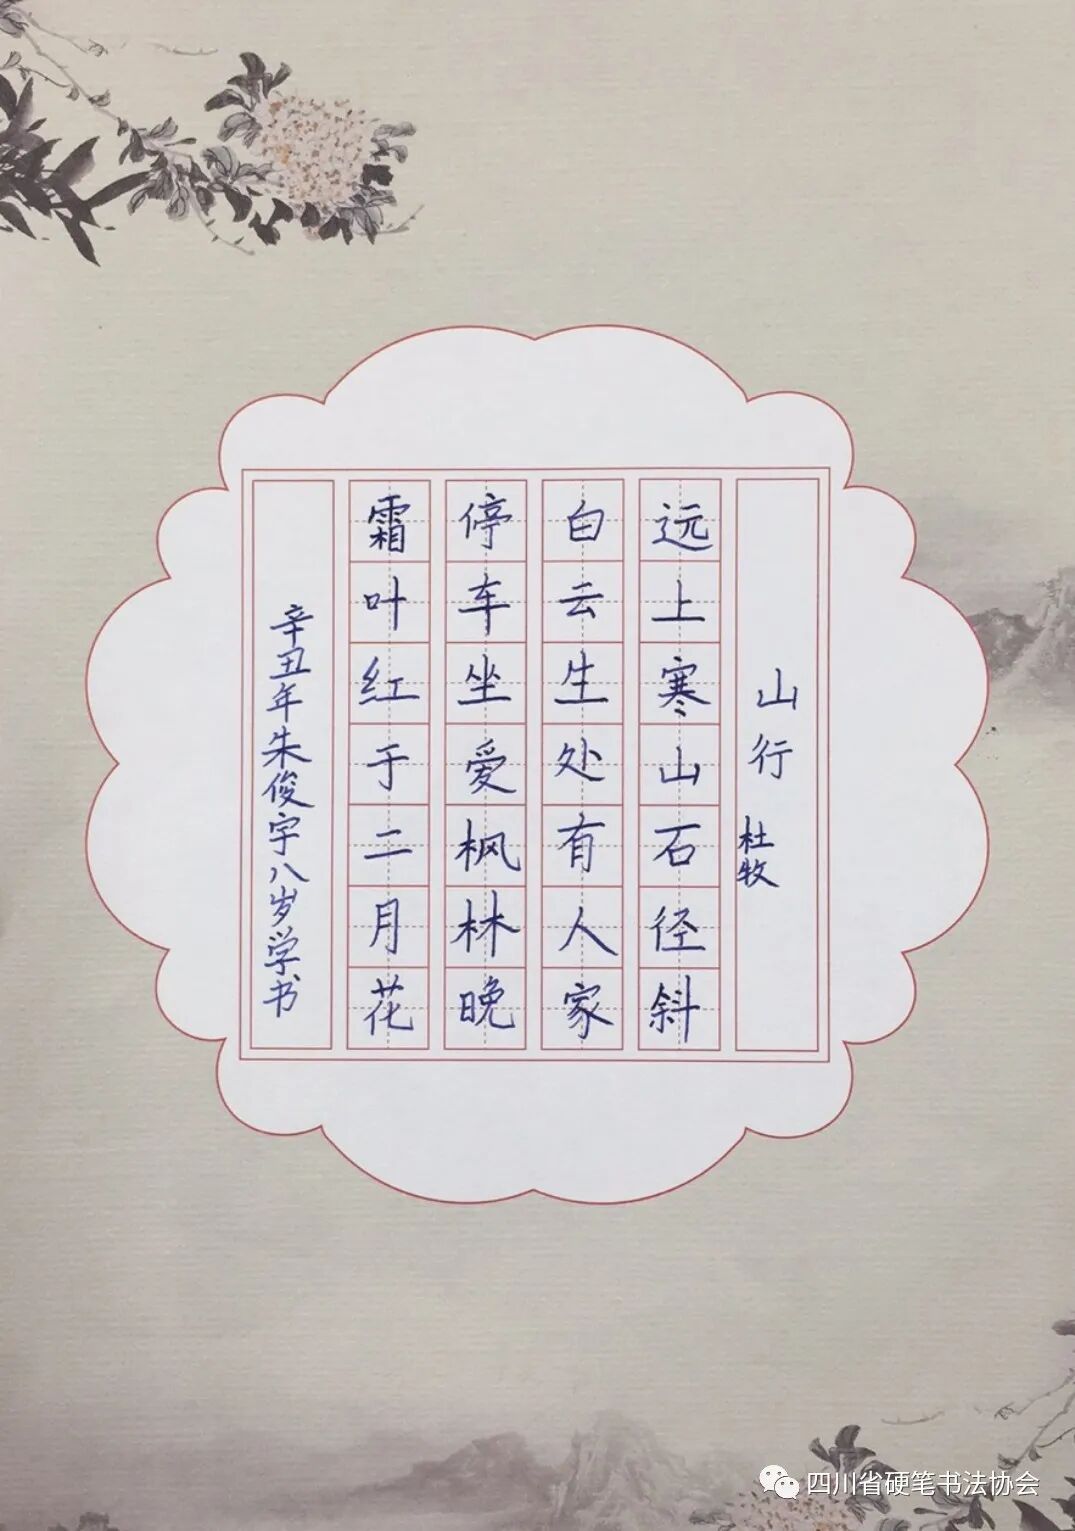 山行 杜牧
远上寒山石径斜
白云生处有人家
停车坐爱枫林晚
霜叶红于二月花
辛丑年朱俊宇八岁学书
四川省硬笔书法协会